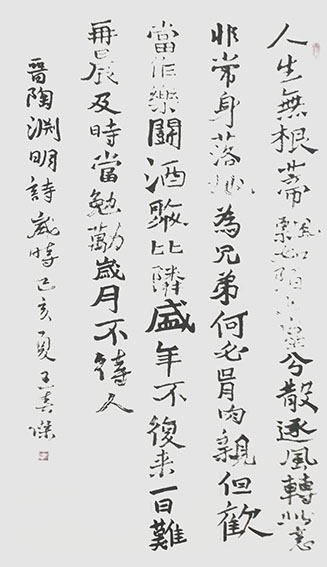 人生無根蒂飄如陌上塵分散逐風轉此
非常身落地為兄弟何必骨肉親但歡
當作樂鬪酒聚比隣盛年不復来一日難
再晨及時當勉勵歲月不待人
晉陶淵明詩歲時己亥夏王傑